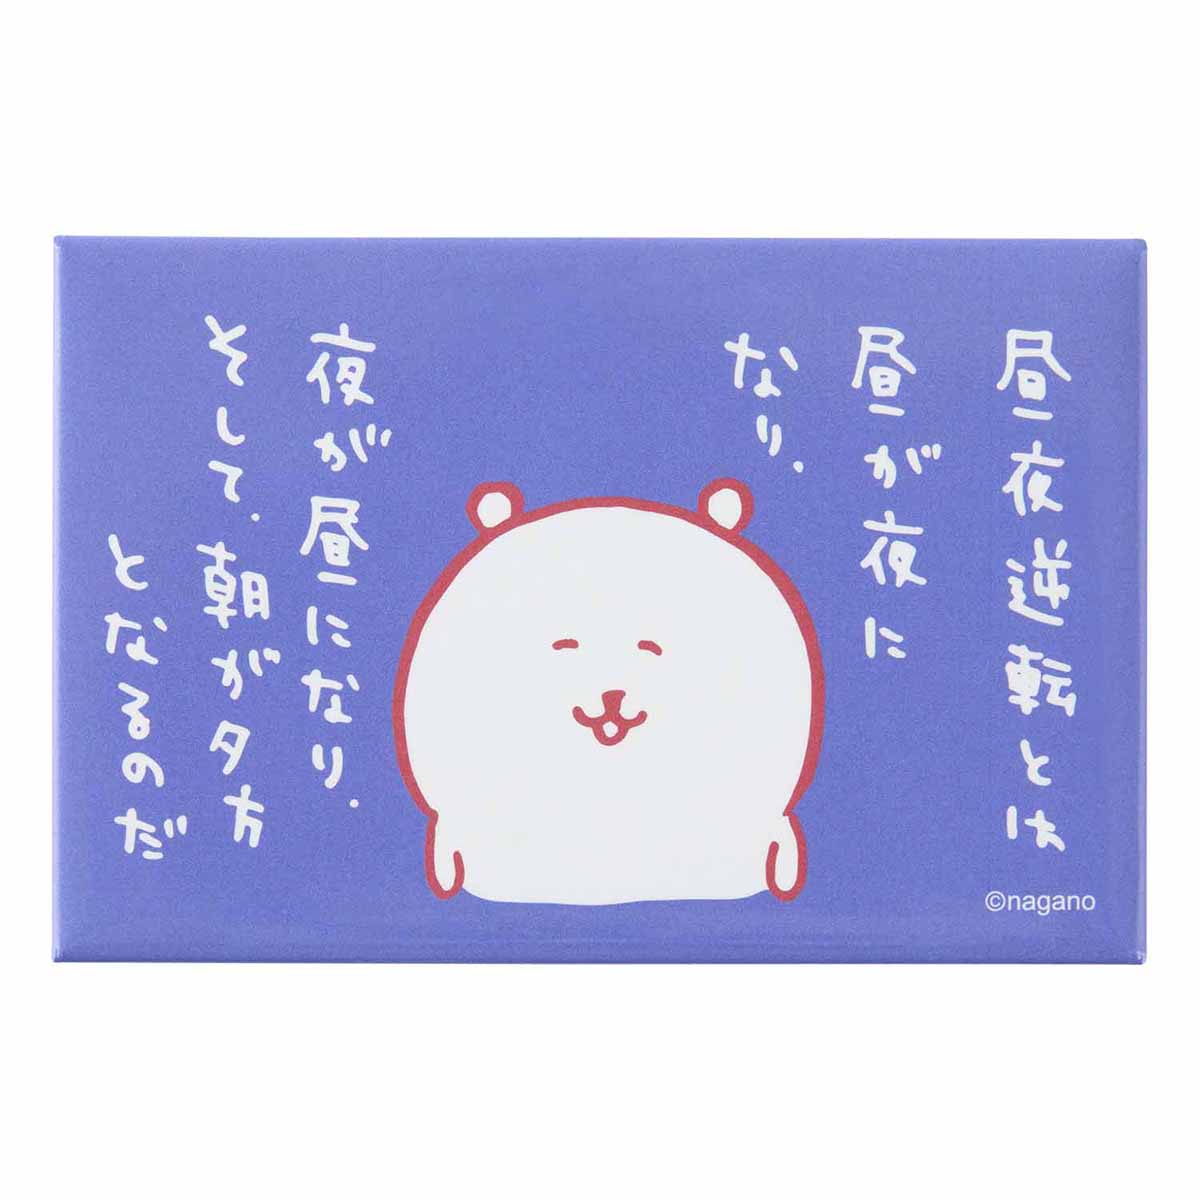 昼夜逆転とは
昼が夜に
なり.
夜が昼になり.
そして.朝が夕方
となるのだ
©nagano